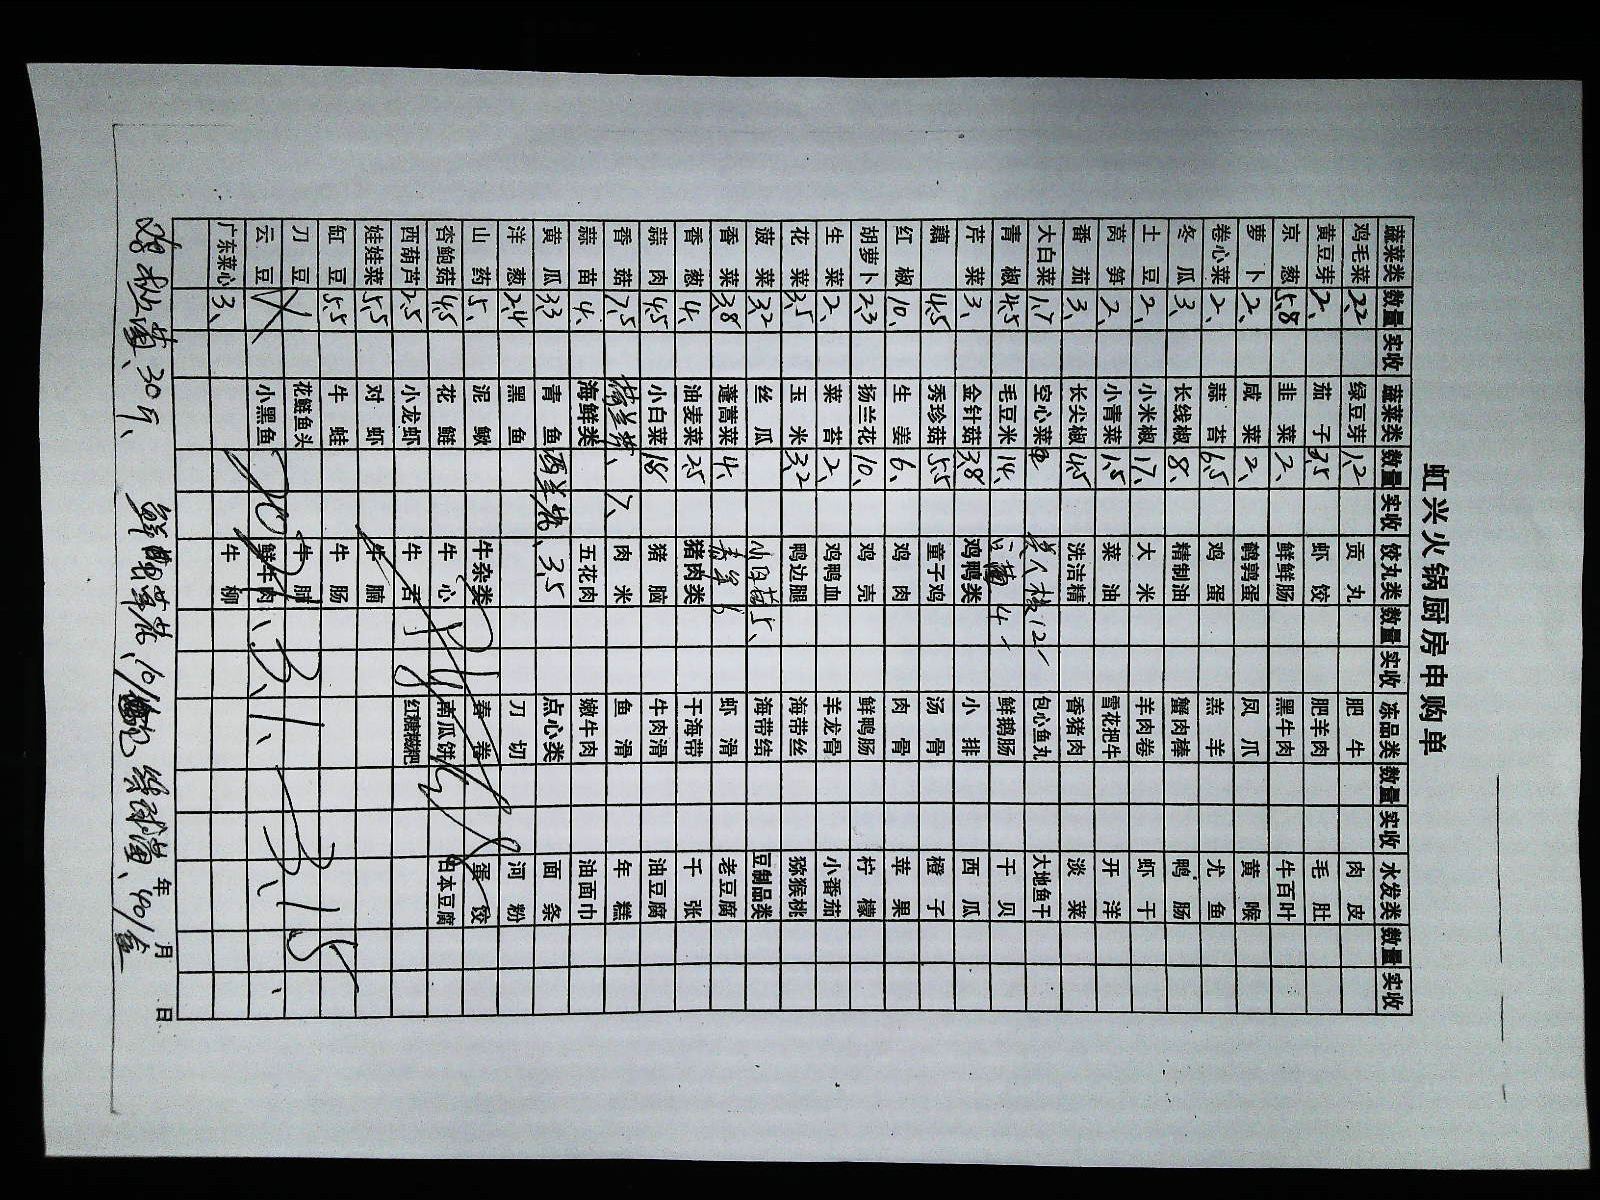 虹兴火锅厨房申购单
蔬菜类 数量 实收 蔬菜类 数量 实收 饺丸类 数量 实收 冻品类 数量 实收 水发类 数量 实收
鸡毛菜 2.2 绿豆芽 1.2 贡丸 肥牛 肉皮
黄豆芽 2. 茄子 3.5 虾饺 肥羊肉 毛肚
京葱 5.8 韭菜 2. 鲜鲜肠 黑牛肉 牛百叶
萝卜 2. 咸菜 2. 鹌鹑蛋 凤爪 黄喉
卷心菜 2. 蒜苔 6.5 鸡蛋 羔羊 尤鱼
冬瓜 3. 长线椒 8. 精制油 蟹肉棒 鸭肠
土豆 2. 小米椒 17. 大米 羊肉卷 虾干
莴笋 2. 小青菜 1.5 菜油 雪花把牛 开洋
番茄 3. 长尖椒 4.5 洗洁精 香猪肉 淡菜
大白菜 1.7 空心菜 包心鱼丸 大地鱼干
青椒 4.5 毛豆米 14. 4 鲜鹅肠 干贝
芹菜 3. 金针菇 3.8 鸡鸭类 小排 西瓜
藕 4.5 秀珍菇 5.5 童子鸡 汤骨 橙子
红椒 10. 生姜 6. 鸡肉 肉骨 苹果
胡萝卜 2.3 扬兰花 10. 鸡壳 鲜鸭肠 柠檬
生菜 2. 菜苔 2. 鸡鸭血 羊龙骨 小番茄
花菜 3.5 玉米 3.2 鸭边腿 海带丝 猕猴桃
菠菜 3.2 丝瓜 5. 海带结 豆制品类
香菜 3.8 蓬蒿菜 4. 虾滑 老豆腐
香葱 4. 油麦菜 2.5 猪肉类 干海带 千张
蒜肉 4.5 小白菜 18 猪脑 牛肉滑 油豆腐
香菇 7.5 7. 肉米 鱼滑 年糕
蒜苗 4. 海鲜类 五花肉 嫩牛肉 油面巾
黄瓜 3.3 青鱼 3.5 点心类 面条
洋葱 2.4 黑鱼 刀切 河粉
山药 5. 泥鳅 牛杂类 春卷 蛋饺
杏鲍菇 4.5 花鲢 牛心 南瓜饼 日本豆腐
西葫芦 2.5 小龙虾 牛舌 红糖糍粑
娃娃菜 5.5 对虾 牛腩
缸豆 5.5 牛蛙 牛肠
刀豆 花鲢鱼头 牛脯
云豆 小黑鱼 鲜牛肉
广东菜心 3. 牛柳
30斤、
年 月 日